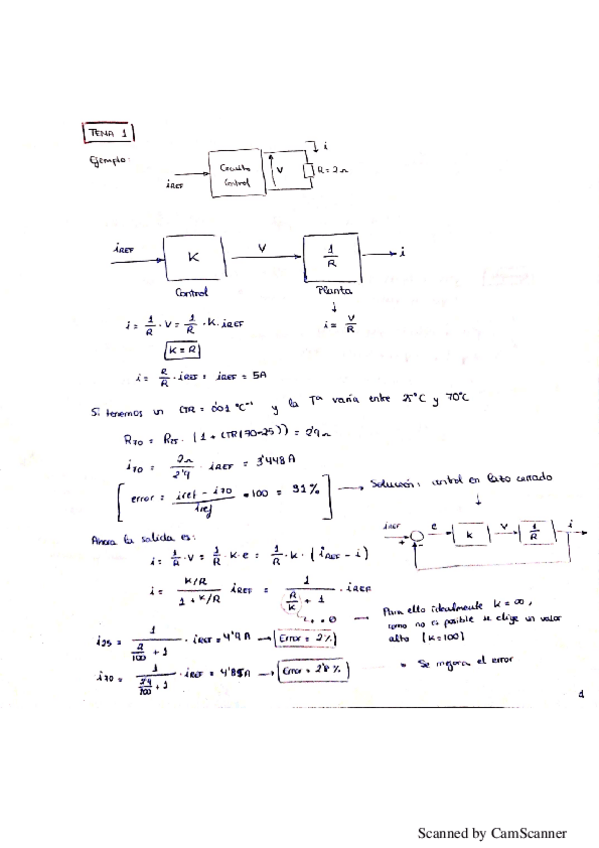 TEMA 1
Ejemplo:
iREF
Circuito Control
V
i
R=2Ω
iREF
K
V
1/R
i
Control
Planta
i = 1/R · V = 1/R · K · iREF
i = V/R
K = R
i = R/R · iREF = iREF = 5A
Si tenemos un CTR = 0'01 °C⁻¹ y la Tª varía entre 25°C y 70°C
R70 = R25 · (1 + CTR(70-25)) = 2'9Ω
i70 = 2Ω/2'9 · iREF = 3'448A
[error = (iref - i70)/iref · 100 = 31%] → Solución: control en lazo cerrado
Ahora la salida es:
iREF
+
-
e
K
V
1/R
i
i = 1/R · V = 1/R · K · e = 1/R · K · (iREF - i)
i = (K/R)/(1 + K/R) iREF = 1/(R/K + 1) · iREF
→ 0 → Para ello idealmente K = ∞,
como no es posible se elige un valor
alto (K=100)
i25 = 1/(2/100 + 1) · iREF = 4'9A → Error = 2%
i70 = 1/(2'9/100 + 1) · iREF = 4'85A → Error = 2'8%
Se mejora el error
1
Scanned by CamScanner